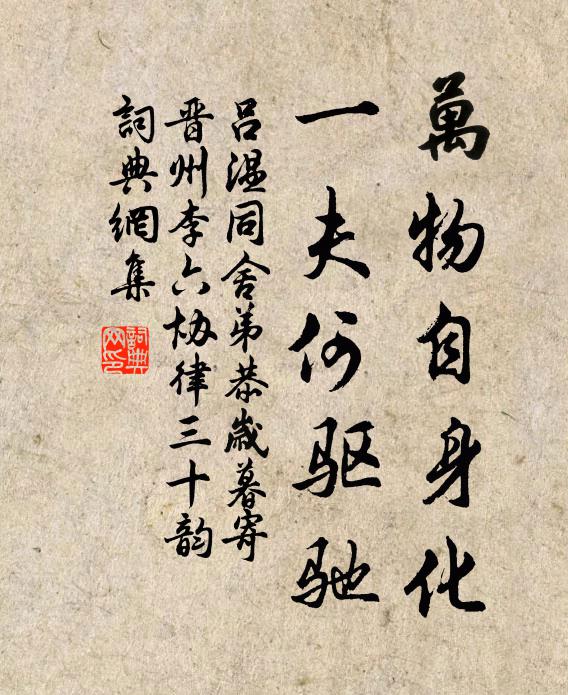 萬物自身化
一夫何驱驰
吕温同舍弟恭岁暮寄
晋州李六协律三十韵
詞典網集
詞典網印